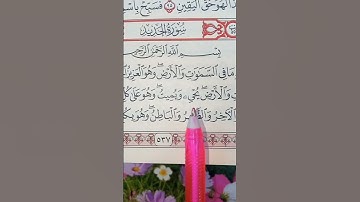 ذَا لَهُوَ حَقُّ الْيَقِينِ ﴿٩٥﴾ فَسَبِّحْ بِاسْ
سُورَةُ الْحَدِيدِ
بِسْمِ اللَّهِ الرَّحْمَٰنِ الرَّحِيمِ
مَا فِي السَّمَاوَاتِ وَالْأَرْضِ ۖ وَهُوَ الْعَزِيزُ
وَالْأَرْضِ ۖ يُحْيِي وَيُمِيتُ ۖ وَهُوَ عَلَىٰ
وَالْآخِرُ وَالظَّاهِرُ وَالْبَاطِنُ ۖ وَهُوَ بِكُ
٥٣٧